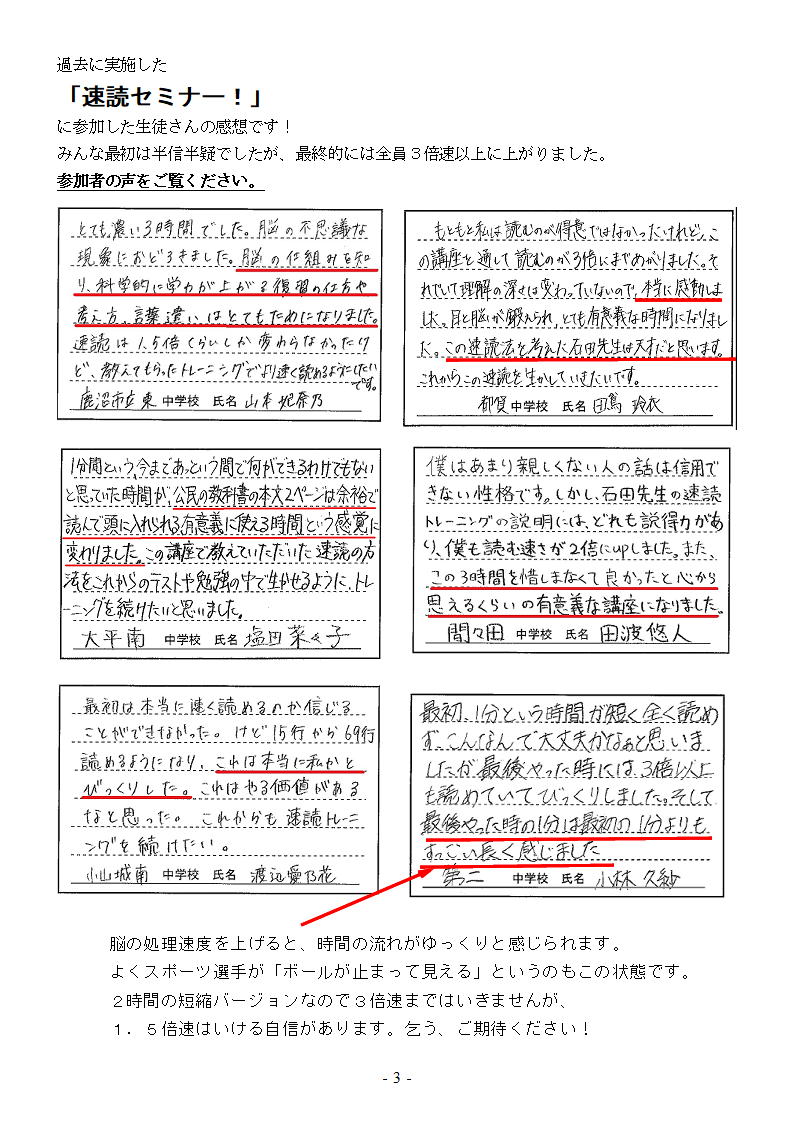 過去に実施した
「速読セミナー！」
に参加した生徒さんの感想です！
みんな最初は半信半疑でしたが、最終的には全員３倍速以上に上がりました。
参加者の声をご覧ください。
とても濃い3時間でした。脳の不思議な
現象におどろきました。脳の仕組みを知
り、科学的に学力が上がる復習の仕方や
考え方、言葉遣いはとてもためになりました。
速読は1.5倍くらいしか変わらなかったけ
ど、教えてもらったトレーニングでより速く読めるようにけたい
です。
鹿沼市立東 中学校 氏名 山本 妃奈乃
もともと私は読むのが得意ではなかったけれど、こ
の講座を通して読むのが3倍にまであがりました。そ
れでいて理解の深さは変わっていないので、本当に感動しま
した。目と脳が鍛えられ、とても有意義な時間になりまし
た。この速読法を考えた石田先生は天才だと思います。
これからこの速読を生かしていきたいです。
都賀 中学校 氏名 田嶌 玲衣
1分間という、今まであっという間で何ができるわけでもない
と思っていた時間が、公民の教科書の本文2ページは余裕で
読んで頭に入れられる有意義に使える時間という感覚に
変わりました。この講座で教えていただいた速読の方
法をこれからのテストや勉強の中で生かせるように、トレ
ーニングを続けたいと思いました。
大平南 中学校 氏名 塩田 菜々子
僕はあまり親しくない人の話は信用で
きない性格です。しかし、石田先生の速読
トレーニングの説明には、どれも説得力があ
り、僕も読む速さが2倍にupしました。また、
この3時間を惜しまなくて良かったと心から
思えるくらいの有意義な講座になりました。
間々田 中学校 氏名 田波 悠人
最初は本当に速く読めるのか信じる
ことができなかった。けど15行から69行
読めるようになり、これは本当に私かと
びっくりした。これはやる価値がある
なと思った。これからも速読トレーニ
ングを続けたい。
小山城南 中学校 氏名 渡辺 愛乃花
最初、1分という時間が短く全く読め
ず、こんなんで大丈夫かなぁと思いま
したが最後やった時には、3倍以上
も読めていてびっくりしました。そして
最後やった時の1分は最初の1分よりも
すっごい長く感じました
第二 中学校 氏名 小林 久紗
脳の処理速度を上げると、時間の流れがゆっくりと感じられます。
よくスポーツ選手が「ボールが止まって見える」というのもこの状態です。
２時間の短縮バージョンなので３倍速まではいきませんが、
１．５倍速はいける自信があります。乞う、ご期待ください！
- 3 -